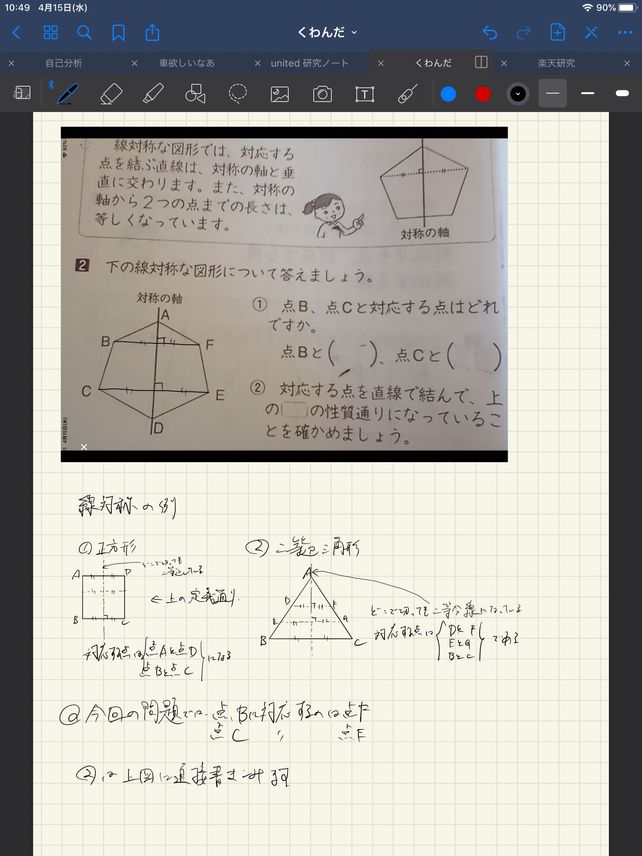 10:49 4月15日(水)
90%
くわんだ
自己分析
車欲しいなあ
united 研究ノート
くわんだ
楽天研究
線対称な図形では、対応する
点を結ぶ直線は、対称の軸と垂
直に交わります。また、対称の
軸から2つの点までの長さは、
等しくなっています。
対称の軸
2 下の線対称な図形について答えましょう。
対称の軸
A
B
F
C
E
D
① 点B、点Cと対応する点はどれ
ですか。
点Bと( )、点Cと( )
② 対応する点を直線で結んで、上
の の性質通りになっているこ
とを確かめましょう。
線対称の例
①正方形
A D
B C
← 上の定義通り
対応する点は 点Aと点D 点Bと点C になる
② 二等辺三角形
A
D F
E G
B C
どこで切っても二等分線になっている
対応する点は DとF EとG BとC である
① 今回の問題では、点Bに対応するのは点F
点C 〃 点E
②は上図に直接書き